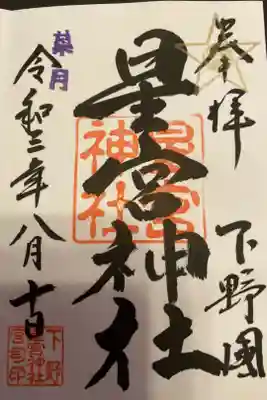 奉拝
下野國
星宮神社
星宮神社
葉月
令和三年八月十日
下野
星宮神社
宮司印